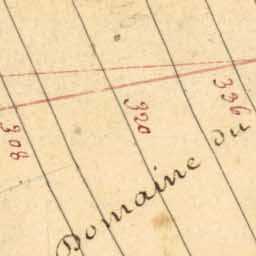 308
320
336
Domaine du